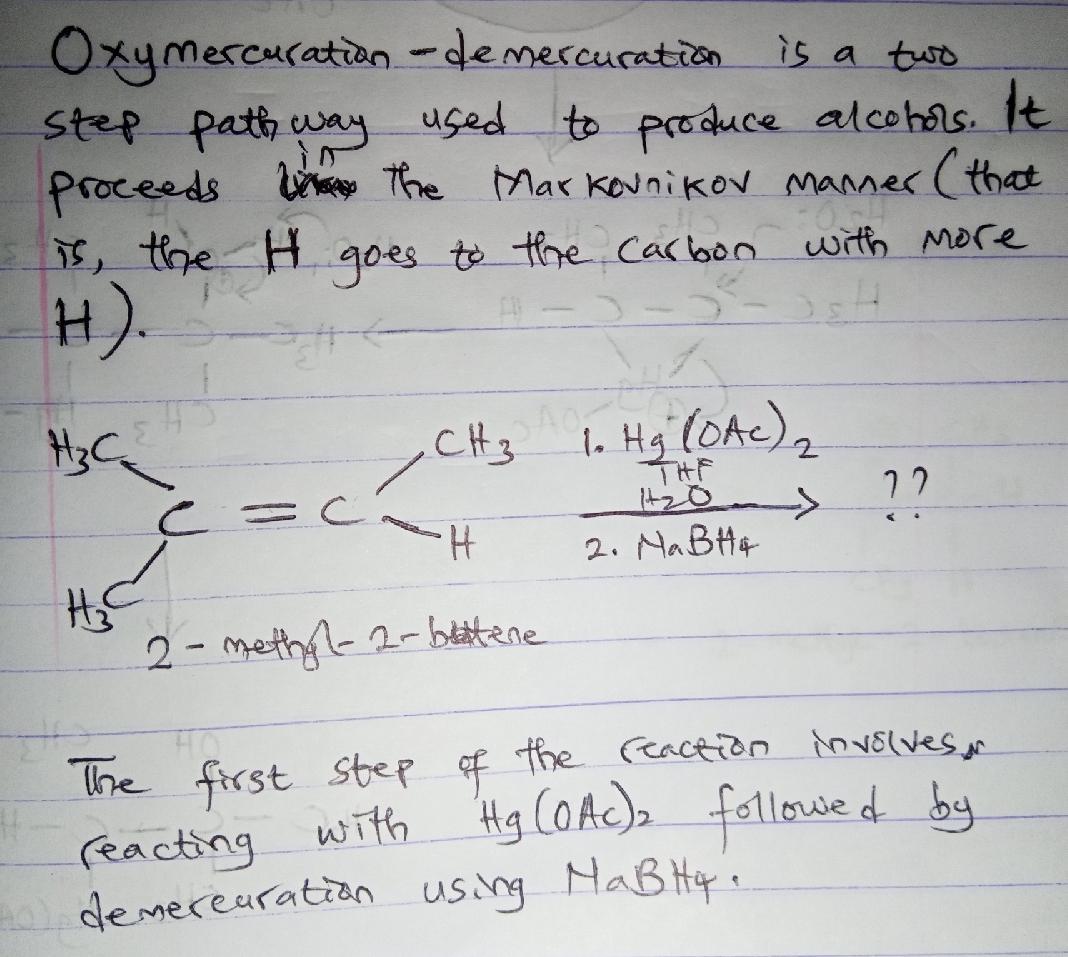 Oxymercuration - demercuration is a two
step pathway used to produce alcohols. It
proceeds in the Markovnikov manner (that
is, the H goes to the carbon with more
H).
H3C CH3 1. Hg(OAc)2
THF
C = C H2O ??
H 2. NaBH4
H3C
2 - methyl - 2 - butene
The first step of the reaction involves
reacting with Hg(OAc)2 followed by
demercuration using NaBH4.